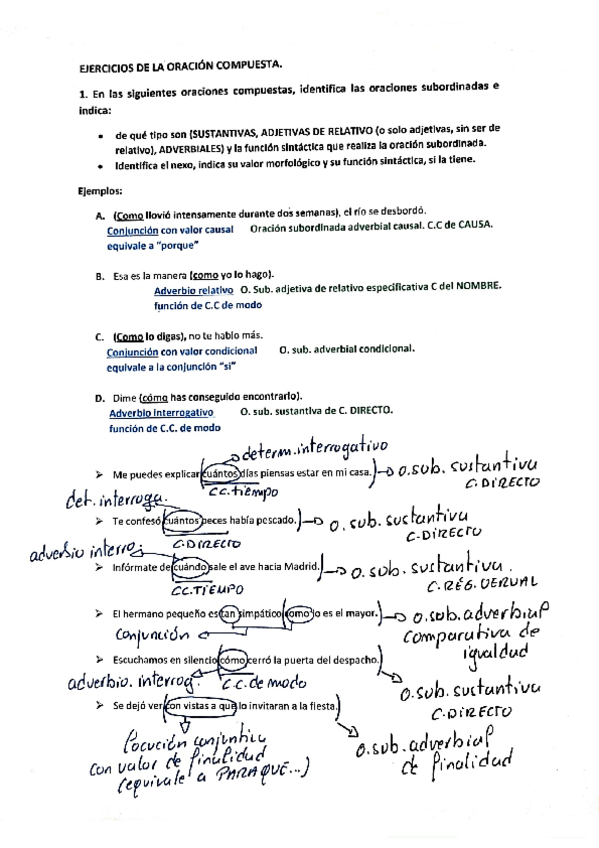 EJERCICIOS DE LA ORACIÓN COMPUESTA.
1. En las siguientes oraciones compuestas, identifica las oraciones subordinadas e
indica:
• de qué tipo son (SUSTANTIVAS, ADJETIVAS DE RELATIVO (o solo adjetivas, sin ser de
relativo), ADVERBIALES) y la función sintáctica que realiza la oración subordinada.
• Identifica el nexo, indica su valor morfológico y su función sintáctica, si la tiene.
Ejemplos:
A. (Como llovió intensamente durante dos semanas), el río se desbordó.
Conjunción con valor causal Oración subordinada adverbial causal. C.C de CAUSA.
equivale a "porque"
B. Esa es la manera (como yo lo hago).
Adverbio relativo O. Sub. adjetiva de relativo especificativa C del NOMBRE.
función de C.C de modo
C. (Como lo digas), no te hablo más.
Conjunción con valor condicional O. sub. adverbial condicional.
equivale a la conjunción "si"
D. Dime (cómo has conseguido encontrarlo).
Adverbio interrogativo O. sub. sustantiva de C. DIRECTO.
función de C.C. de modo
determ. interrogativo
➢ Me puedes explicar cuántos días piensas estar en mi casa. O. sub. sustantiva
CC. tiempo C. DIRECTO
det. interroga.
➢ Te confesó cuántos peces había pescado. O. sub. sustantiva
C. DIRECTO C. DIRECTO
adverbio interro.
➢ Infórmate de cuándo sale el ave hacia Madrid. O. sub. sustantiva.
CC. TIEMPO C. RÉG. VERVAL
➢ El hermano pequeño es tan simpático como lo es el mayor. O. sub. adverbial
Conjunción comparativa de
igualdad
➢ Escuchamos en silencio cómo cerró la puerta del despacho.
adverbio. interrog. C.C. de modo O. sub. sustantiva
C. DIRECTO
➢ Se dejó ver con vistas a que lo invitaran a la fiesta.
Locución conjuntiva O. sub. adverbial
con valor de finalidad de finalidad
(equivale a PARA QUE...)